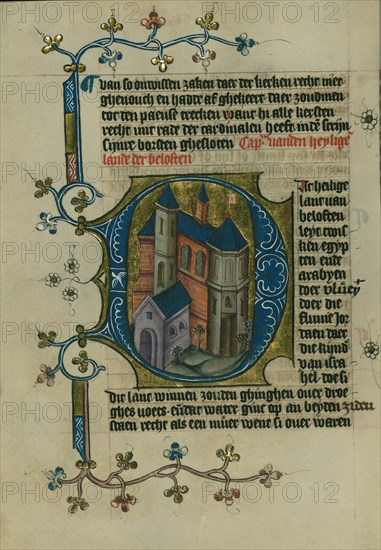 van so onwissen zaken daer der kerken recht niet
ghenouch en hadde af gheheert daer zoudmen
tot den paeuse trecken want hi alle kersten
recht mit rade der cardinalen heeft in den
sinire borsten ghesloten Cap vanden heylige
lande der beloften
Dheilige
lant van
beloften
leyt tous
ken egyp
ten ende
arabyen
doer
doer die
flume Jor
daen daer
die kind
van isra
hel doe si
dit lant winnen zouden ghinghen ouer droe
ghes voets entat water ginc op an beyden ziden
staen recht als een muer went si ouer waren
PHOTO 12